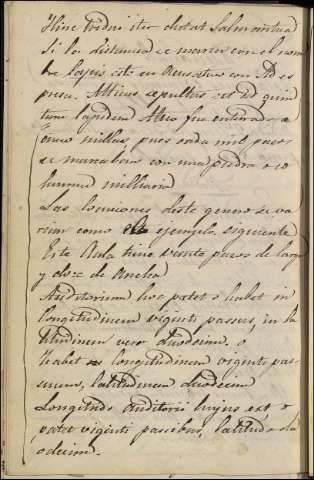 Hinc tridui iter distat Salmantica
Si la distancia se marca con el nom
bre lapis este en Acusativo con Ad es
presa. Atticus sepultus est ad quin
tum lapidem Atico fue enterrado a
cinco millas, pues cada mil pasos
se marcaban con una piedra o co
lumna milliaria
Las locuciones deste genero se va
rian como el ejemplo siguiente
Este Aula tiene veinte pasos de largo
y doce de Ancha
Auditorium hoc patet o habet in
longitudinem viginti passus, in la
titudinem vero duodecim. o
habet longitudinem viginti pas
suum, latitudinem duodecim
Longitudo auditorii hujus est o
patet viginti passibus, latitudo du
odecim.